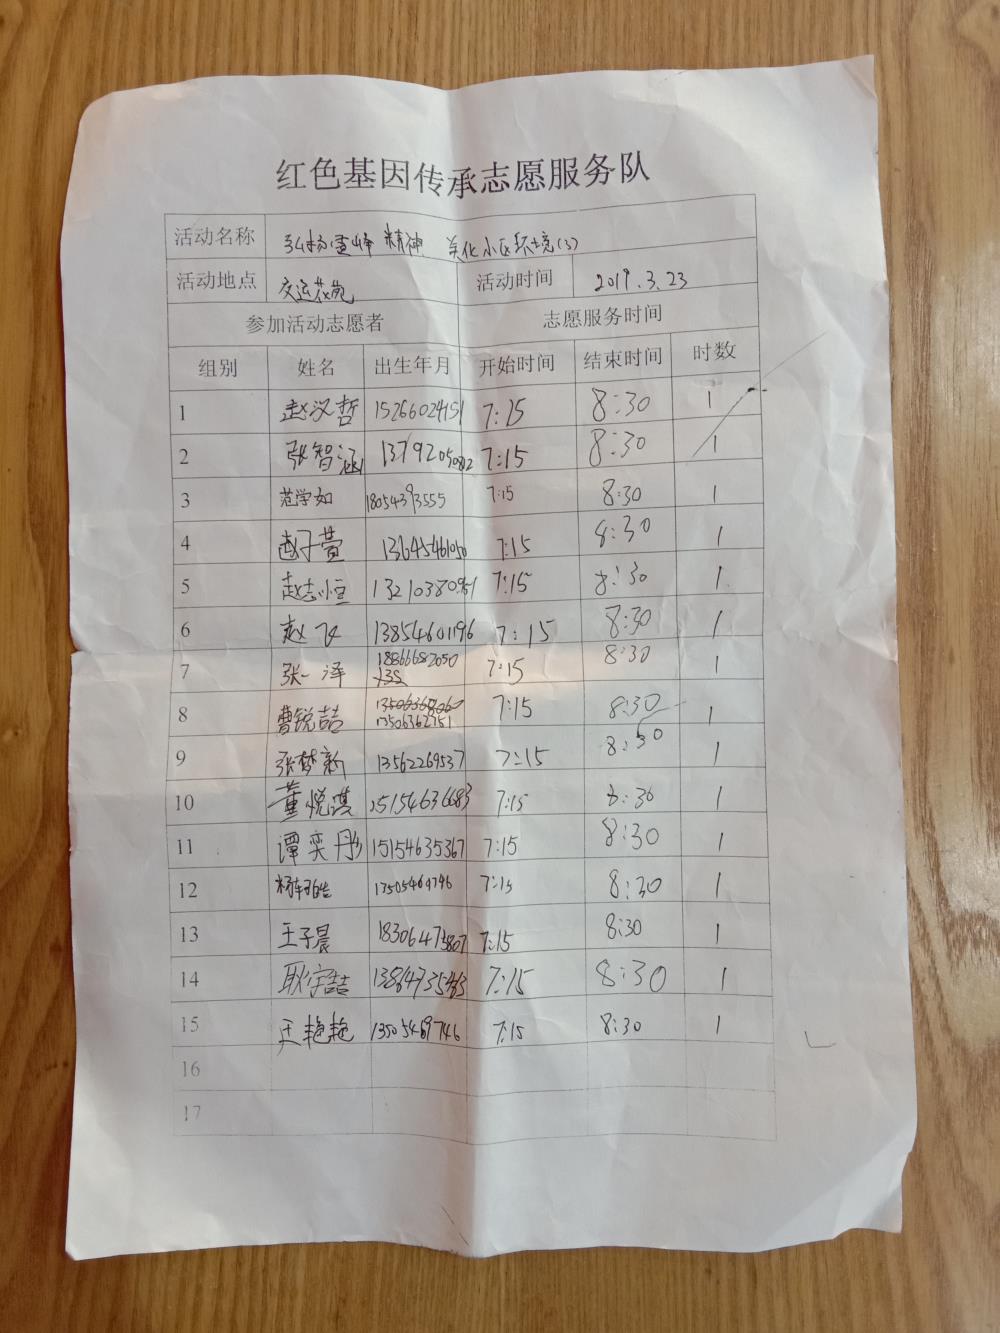 红色基因传承志愿服务队
活动名称 弘扬雷锋精神 美化小区环境(3)
活动地点 交运花苑 活动时间 2019.3.23
参加活动志愿者 志愿服务时间
组别 姓名 出生年月 开始时间 结束时间 时数
1 赵汉哲 15266024151 7:15 8:30 1
2 张智涵 13792050802 7:15 8:30 1
3 范学如 18054393555 7:15 8:30 1
4 赵子萱 13645461050 7:15 8:30 1
5 赵志恒 7:15 8:30 1
6 赵飞 13854601196 7:15 8:30 1
7 张一泽 18866682050 7:15 8:30 1
8 曹锐喆 13506362751 7:15 8:30 1
9 张梦新 13562269537 7:15 8:30 1
10 董悦淇 15154636683 7:15 8:30 1
11 谭奕彤 15154635367 7:15 8:30 1
12 13505469746 7:15 8:30 1
13 王子晨 18306475807 7:15 8:30 1
14 耿宇喆 7:15 8:30 1
15 王艳艳 13505469746 7:15 8:30 1
16
17